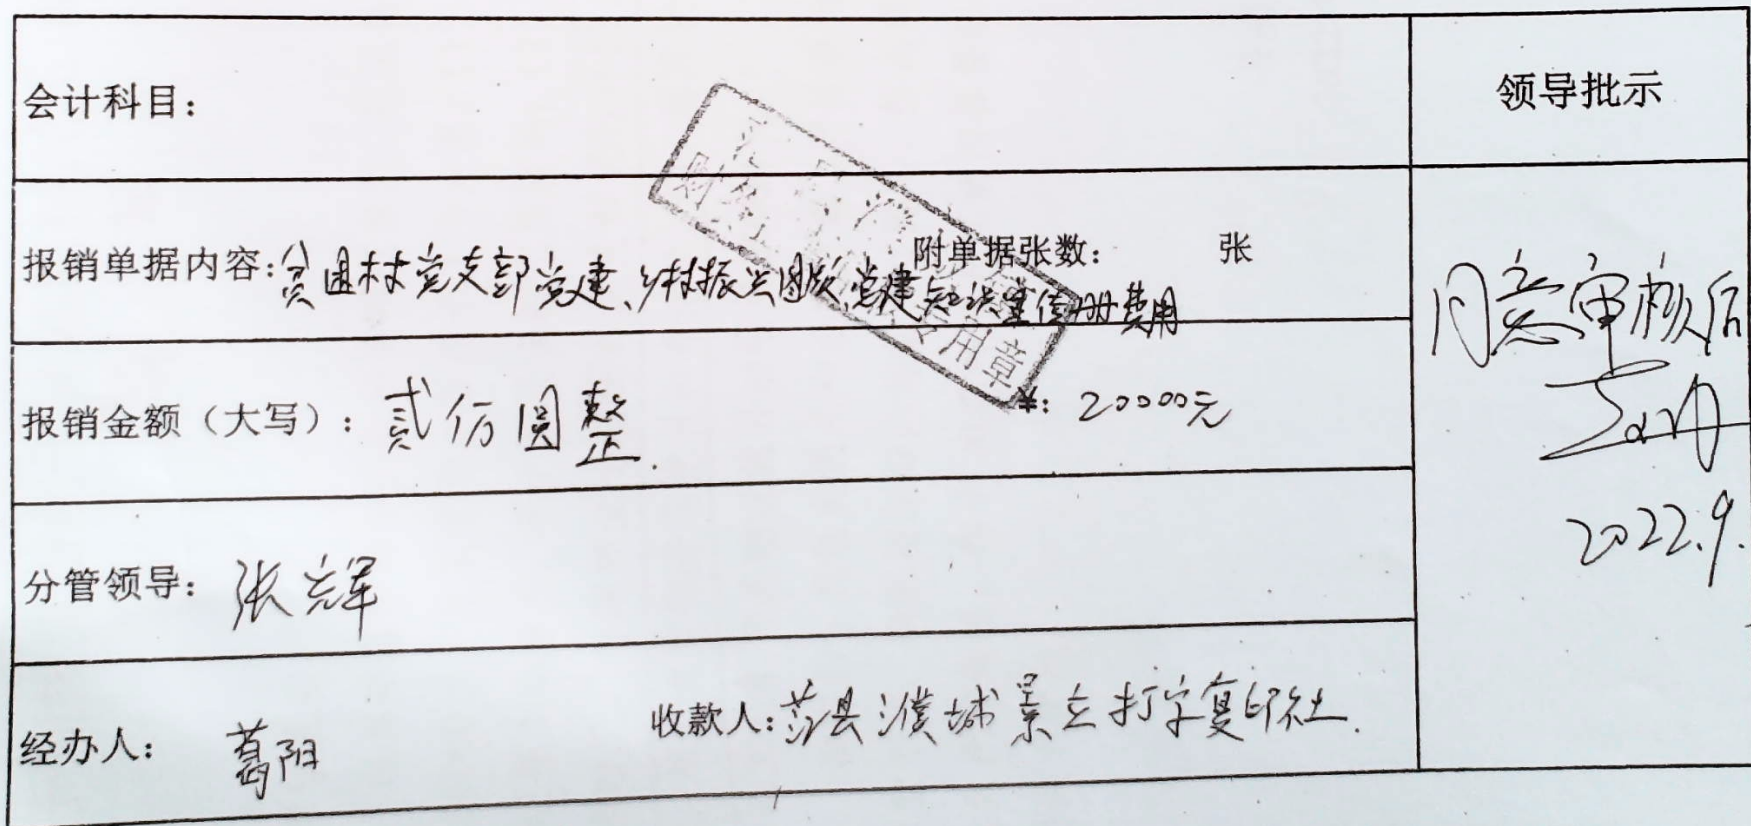 会计科目：
领导批示
报销单据内容：贫困村党支部党建、乡村振兴图版，党建知识宣传册费用
附单据张数： 张
财务 专用章
报销金额（大写）：贰仟圆整. ¥：20000元
同意审核后
2022.9.
分管领导：张辉
经办人：葛阳
收款人：范县濮城景立打字复印社.